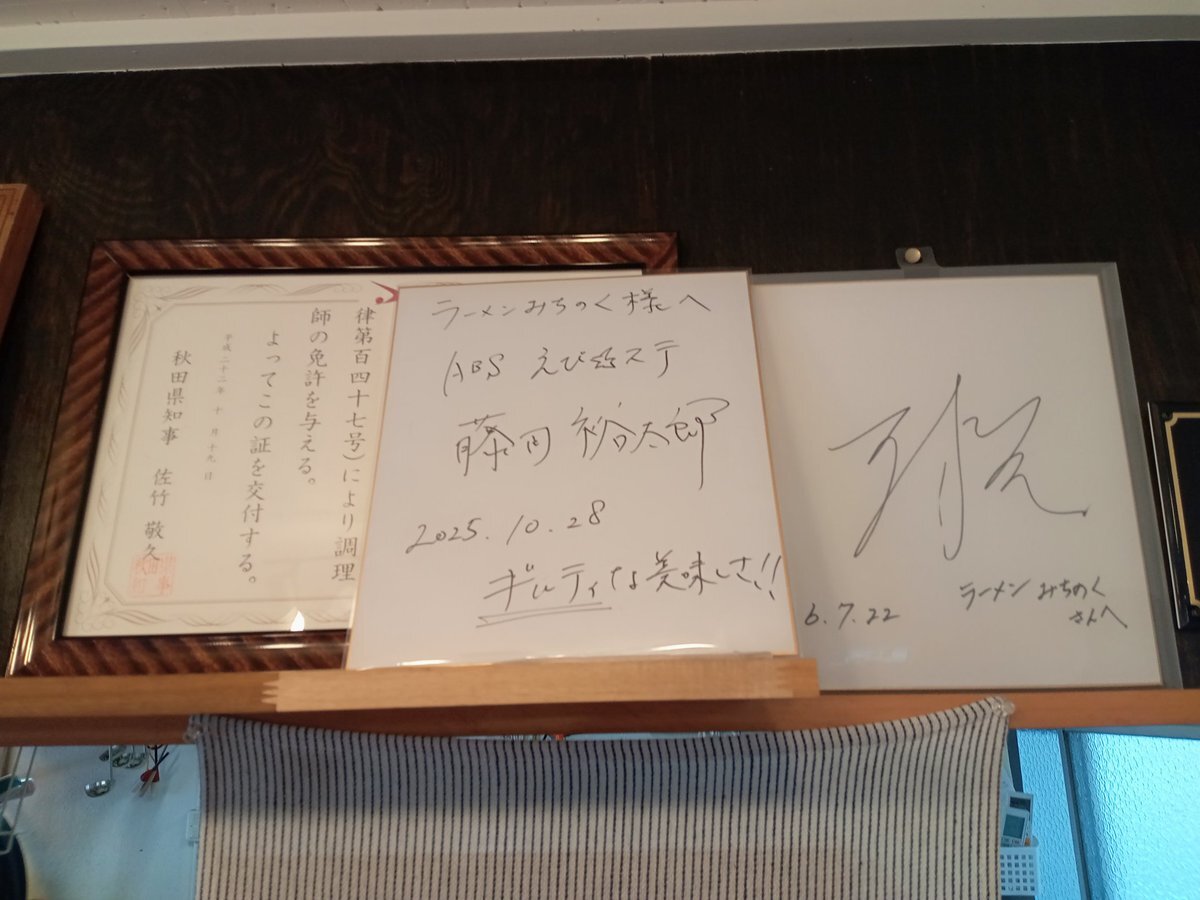 律第百四十七号)により調理
師の免許を与える。
よってこの証を交付する。
平成二十二年 十 月 十九 日
秋田県知事 佐竹 敬久
ラーメンみちのく様へ
ABS えび☆ステ
藤田 裕太郎
2025.10.28
ギルティな美味しさ!!
6.7.22
ラーメン みちのく
さんへ